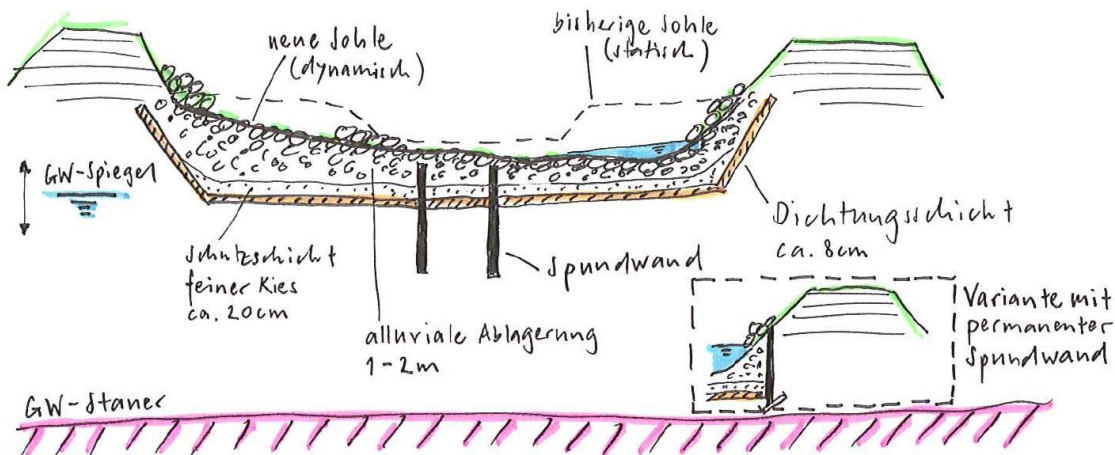 neue Sohle
(dynamisch)
bisherige Sohle
(statisch)
GW-Spiegel
Schutzschicht
feiner Kies
ca. 20cm
alluviale Ablagerung
1-2m
Spundwand
Dichtungsschicht
ca. 8cm
Variante mit
permanenter
Spundwand
GW-Stauer